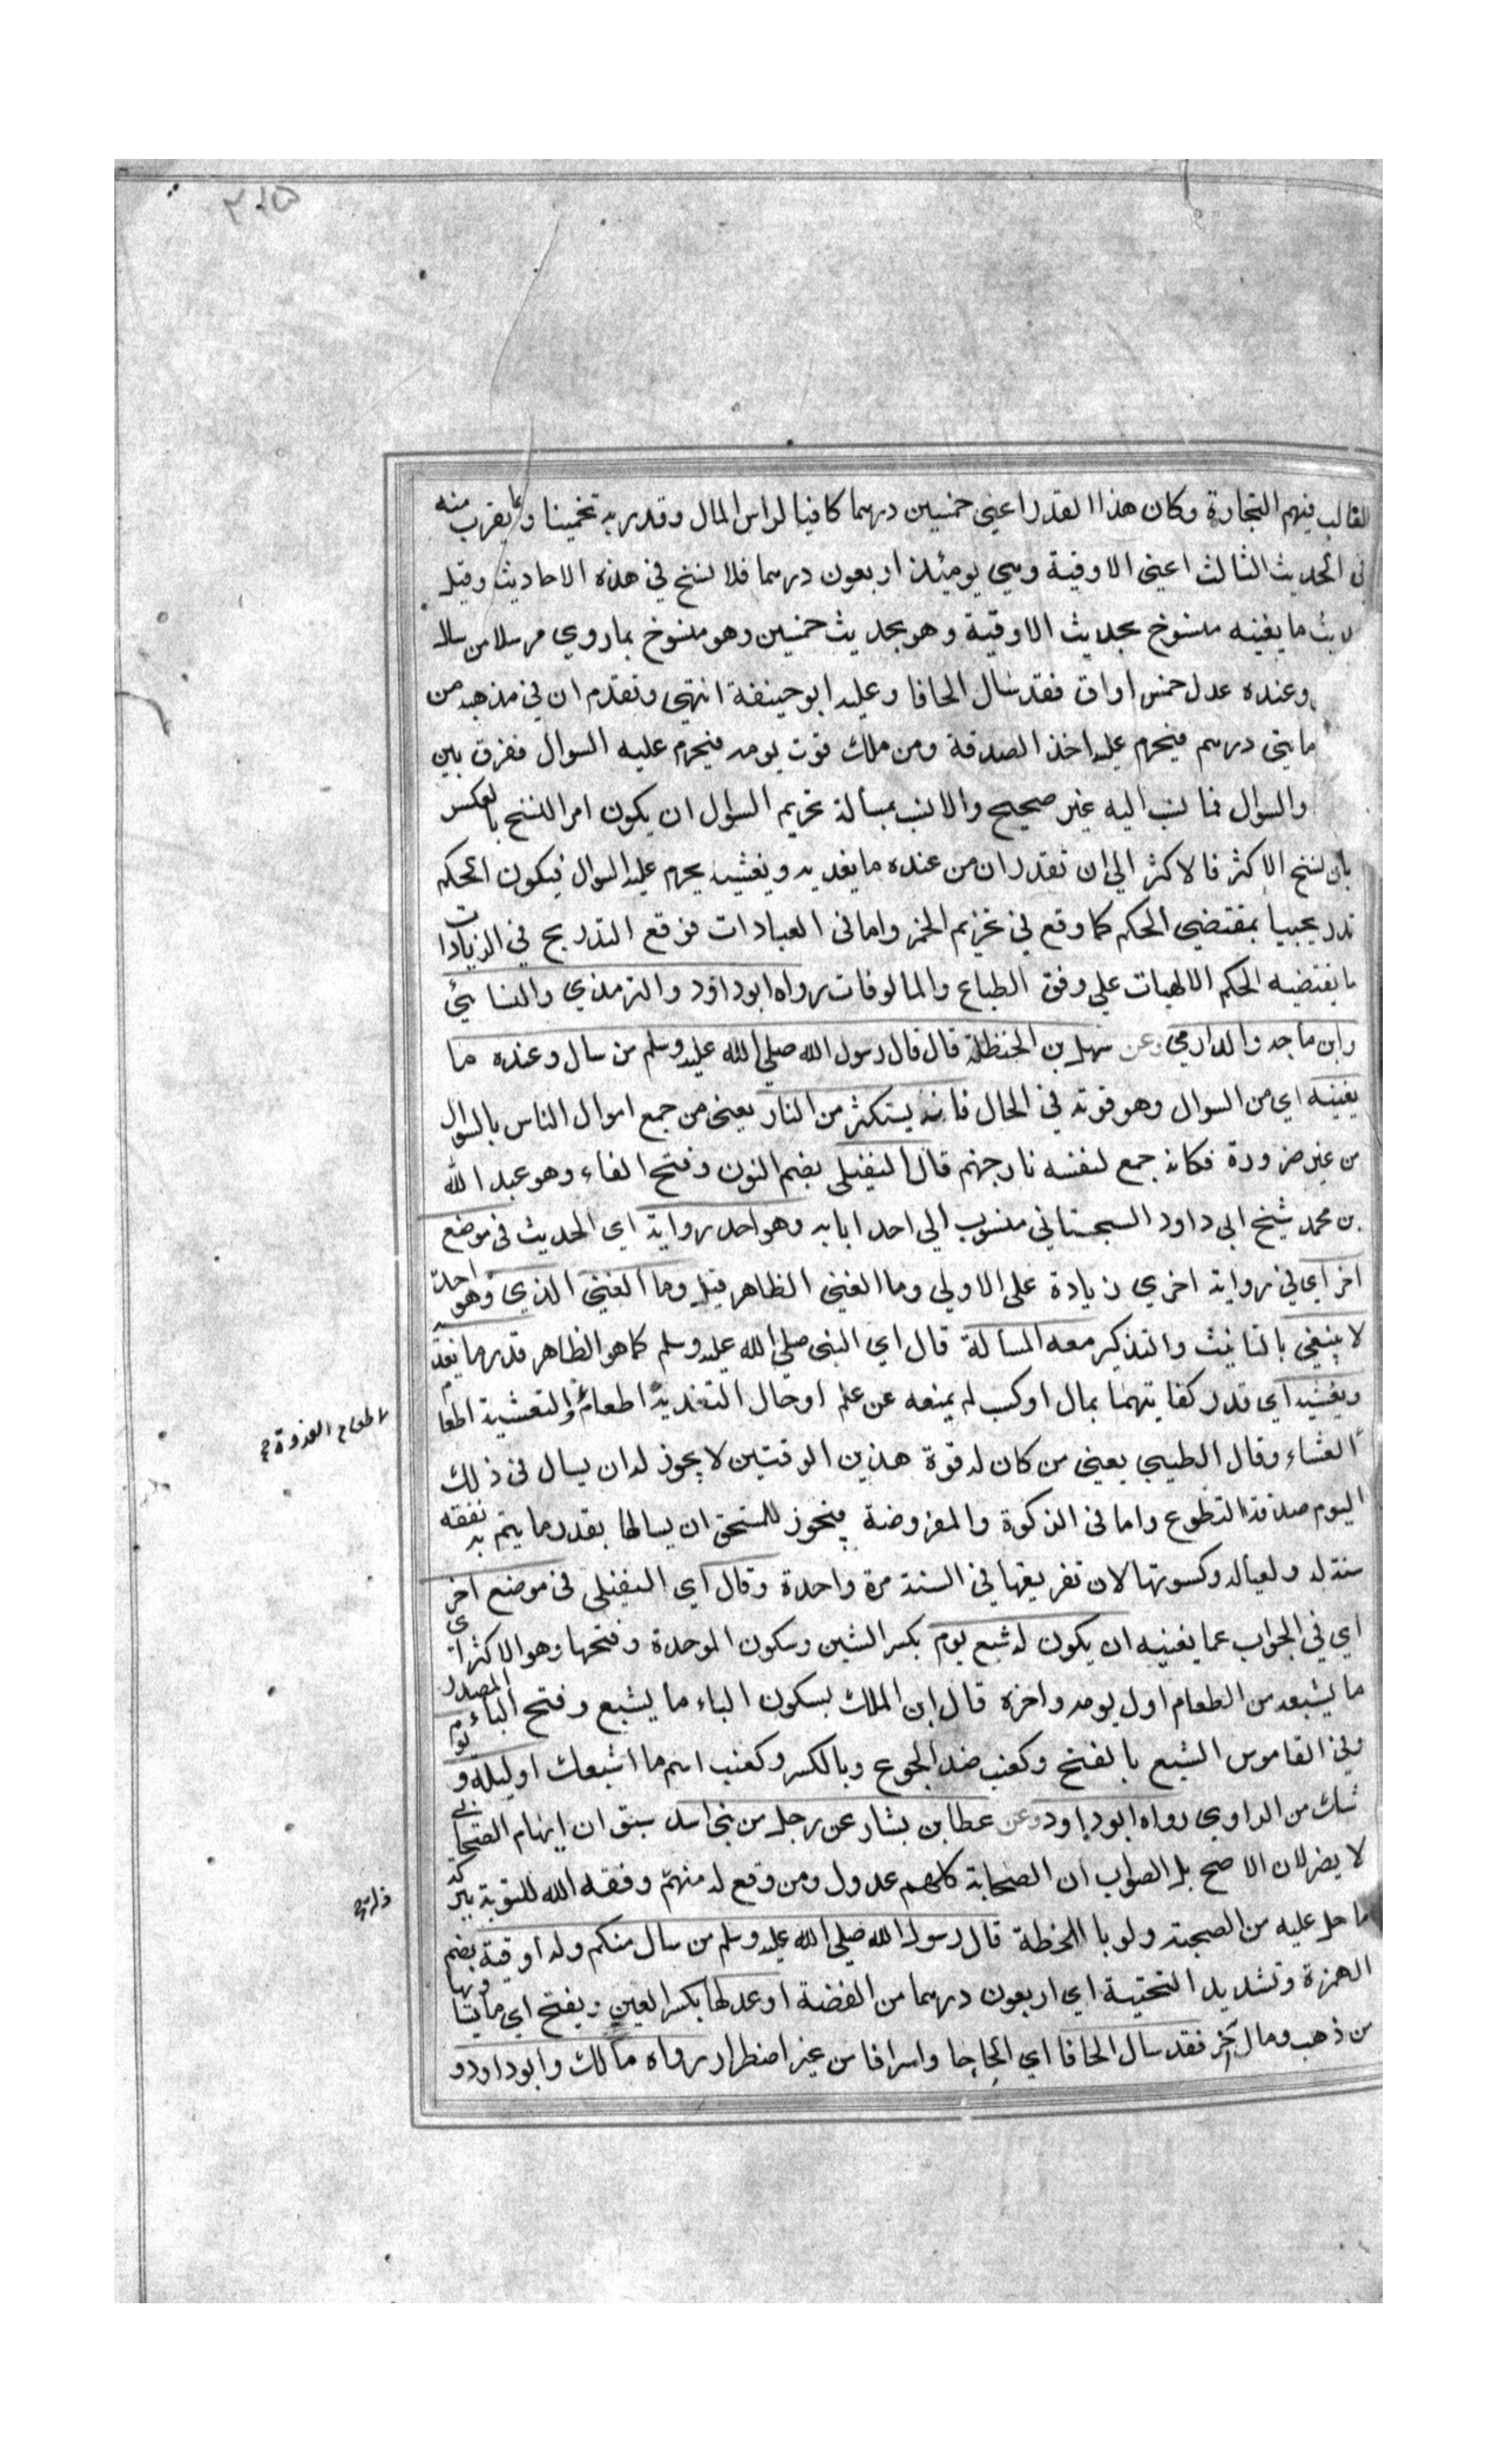 الغالب فيهم التجارة وكان هذا القدر اعني خمسين درهما كافيا لراس المال وقدر به تخمينا وبما يقرب منه
في الحديث الثالث اعني الاوقية وهي يومئذ اربعون درهما فلا نسخ في هذه الاحاديث وقيل
ما يغنيه منسوخ بحديث الاوقية وهو بحديث خمسين وهو منسوخ بما روي مرسلا من سال
وعنده عدل خمس اواق فقد سال الحافا وعليه ابو حنيفة انتهى وتقدم ان في مذهبه من
مايتي درهم فيحرم عليه اخذ الصدقة ومن ملك قوت يومه فيحرم عليه السوال ففرق بين
والسوال فما نسب اليه غير صحيح والانسب بمسألة تحريم السوال ان يكون امر النسخ بالعكس
بان نسخ الاكثر فالاكثر الى ان تقدر ان من عنده ما يغديه ويعشيه يحرم عليه السوال فيكون الحكم
تدريجيا بمقتضي الحكم كما وقع في تحريم الخمر واما في العبادات فوقع التدريج في الزيادات
ما يقتضيه الحكم الالهيات علي وفق الطباع والمالوفات رواه ابو داود والترمذي والنسائي
وابن ماجه والدارمي وعن سهل بن الحنظلة قال قال رسول الله صلى الله عليه وسلم من سال وعنده ما
يغنيه اي من السوال وهو قوته في الحال فانه يستكثر من النار يعني من جمع اموال الناس بالسوال
من غير ضرورة فكانه جمع لنفسه نار جهنم قال النفيلي بضم النون وفتح الفاء وهو عبد الله
بن محمد شيخ ابي داود السجستاني منسوب الي احد ابايه وهو احد رواية اي الحديث في موضع
اخر اي في رواية اخري زيادة على الاولي وما الغني الظاهر قيل وما الغني الذي وهو احد
لا ينبغي بالتانيث والتذكير معه المسالة قال اي النبي صلي الله عليه وسلم كما هو الظاهر قدر ما يغديه
ويعشيه اي قدر كفايتهما بمال او كسب لم يمنعه عن علم او حال التغدية اطعام والتعشية اطعام
العشاء وقال الطيبي يعني من كان له قوة هذين الوقتين لا يجوز له ان يسال في ذلك
اليوم صدقة التطوع واما في الزكوة والمفروضة فيجوز للمستحق ان يسالها بقدر ما يتم به نفقه
سنة له ولعياله وكسوتها لان تفريقها في السنة مرة واحدة وقال اي النفيلي في موضع اخر
اي في الجواب عما يغنيه ان يكون له شبع يوم بكسر الشين وسكون الموحدة وفتحها وهو الاكثر اي
ما يشبعه من الطعام اول يومه واخره قال ابن الملك بسكون الباء ما يشبع وفتح الباء المصدر
وفي القاموس الشبع بالفتح وكعنب ضد الجوع وبالكسر وكعنب اسم ما اشبعك او ليلة ويوم
شك من الراوي رواه ابو داود وعن عطا بن يشار عن رجل من بني اسد سبق ان ابهام الصحابي
لا يضر لان الاصح بل الصواب ان الصحابة كلهم عدول ومن وقع له منهم وفقه الله للتوبة ببركة
ما حل عليه من الصحبة ولو بالحظة قال رسول الله صلي الله عليه وسلم من سال منكم وله اوقية بضم
الهمزة وتشديد التحتية اي اربعون درهما من الفضة او عدلها بكسر العين ويفتح اي ما يساويها
من ذهب ومال اخر فقد سال الحافا اي الحاحا واسرافا من غير اضطرار رواه مالك وابو داود و
اطعام الغدوة